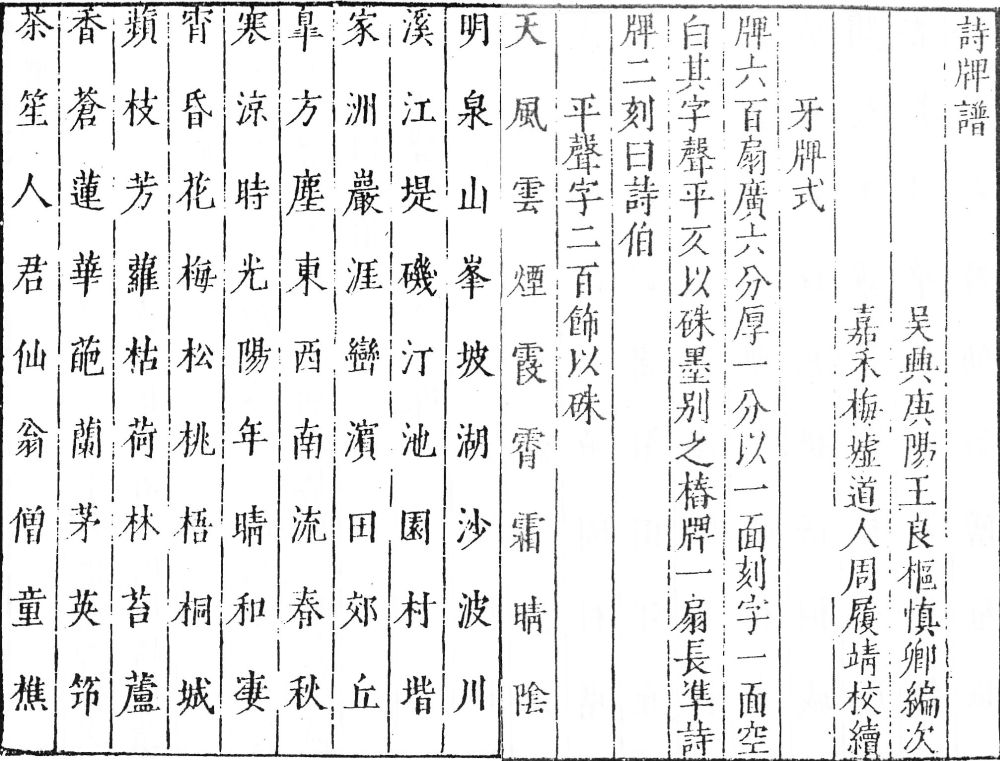 詩牌譜
吳興庚陽王良樞慎卿編次
嘉禾梅墟道人周履靖校續
牙牌式
牌六百扇廣六分厚一分以一面刻字一面空
白其字聲平仄以硃墨別之樁牌一扇長準詩
牌二刻曰詩伯
平聲字二百飾以硃
天風雲煙霞霄霜晴陰
明泉山峯坡湖沙波川
溪江堤磯汀池園村堦
家洲巖涯巒濱田郊丘
皐方塵東西南流春秋
寒涼時光陽年晴和淒
宵昏花梅松桃梧桐城
蘋枝芳蘿枯荷林苔蘆
香蒼蓮華葩蘭茅英筇
茶笙人君仙翁僧童樵